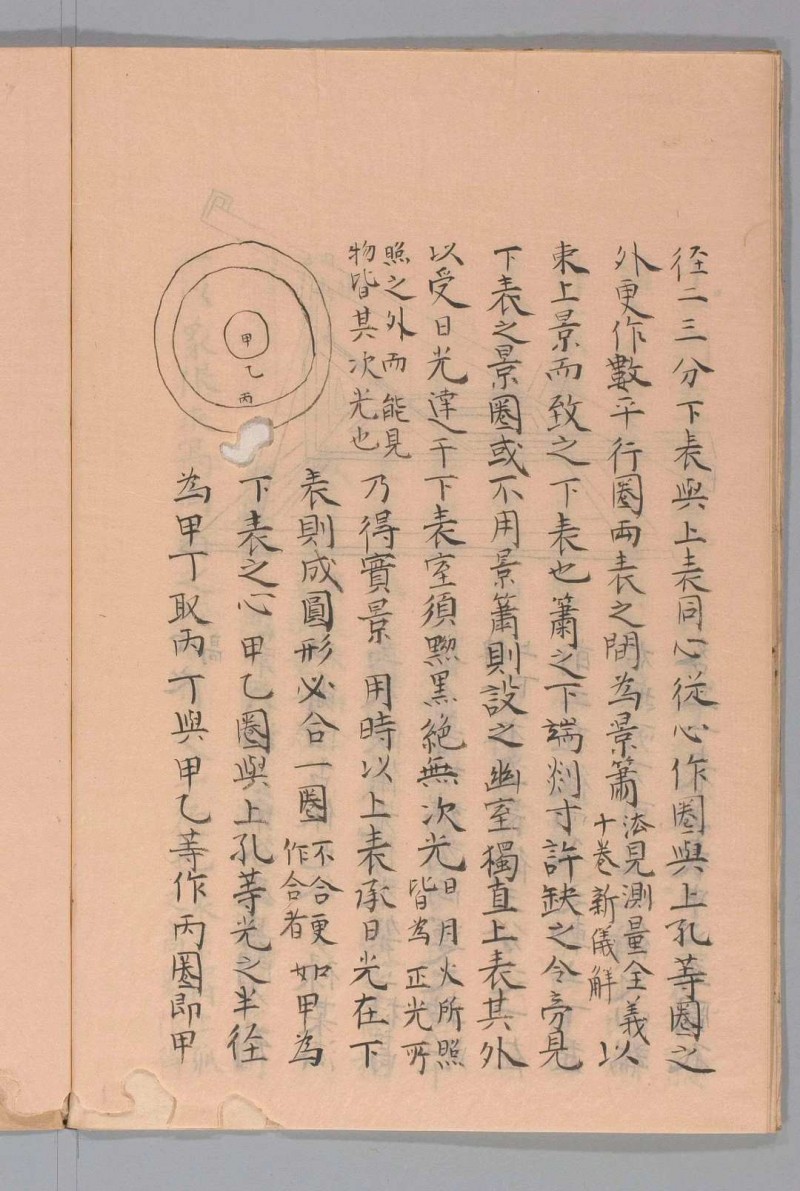 徑二三分下表與上表同心従心作圈與上孔等圈之
外更作數平行圈兩表之間為景簫法見測量全義十卷新儀解以
束上景而致之下表也簫之下端剡寸許缺之令旁見
下表之景圈或不用景簫則設之幽室獨直上表其外
以受日光達于下表室須黝黑絶無次光日月火所照皆為正光所
照之外而能見物皆其次光也乃得實景 用時以上表承日光在下
表則成圓形必合一圈不合更作合者如甲為
下表之心甲乙圈與上孔等光之半徑
為甲丁取丙丁與甲乙等作丙圈即甲
甲
乙
丙